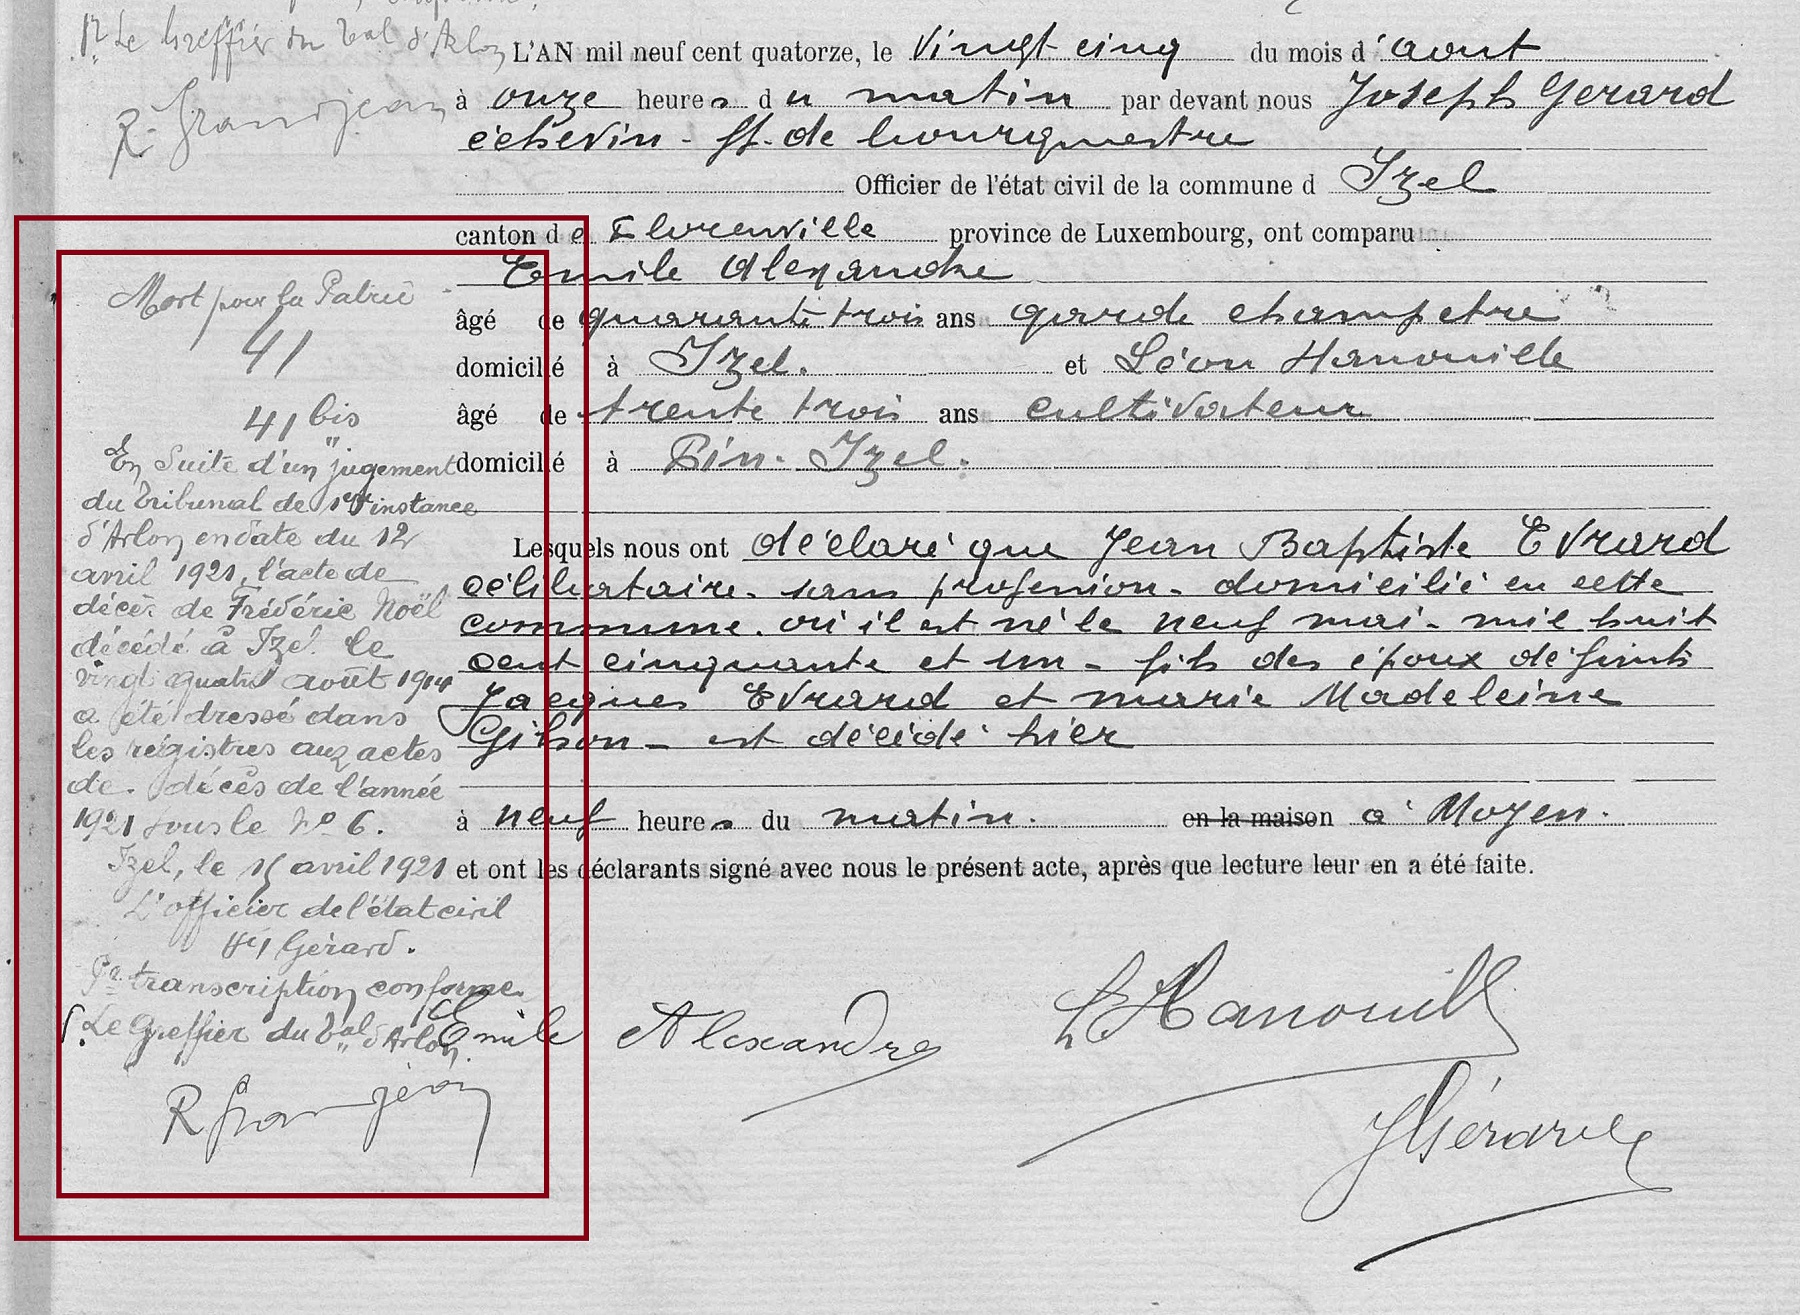 pr Le Greffier du Bal d'Arlon
R. Grandjean
L'AN mil neuf cent quatorze, le vingt cinq du mois d'août
à onze heures du matin par devant nous Joseph Gerard
échevin - ff. de bourgmestre
Officier de l'état civil de la commune d Izel
canton de Florenville province de Luxembourg, ont comparu
Emile Alexandre
âgé de quarante trois ans garde champetre
domicilié à Izel. et Léon Hanouille
âgé de trente trois ans cultivateur
domicilié à Pin-Izel.
Lesquels nous ont déclaré que Jean Baptiste Evrard
célibataire - sans profession - domicilié en cette
commune. où il est né le neuf mai - mil huit
cent cinquante et un - fils des époux défunts
Jacques Evrard et marie Madeleine
Gilson - est décédé hier
à neuf heures du matin. en la maison à Moyen.
et ont les déclarants signé avec nous le présent acte, après que lecture leur en a été faite.
Emile Alexandre
L Hanouill
J Gérard
Mort pour la Patrie
41
41 bis
En Suite d'un jugement
du Tribunal de 1ère instance
d'Arlon en date du 12
avril 1921, l'acte de
décès de Frédéric Noël
décédé à Izel le
vingt quatre août 1914
a été dressé dans
les régistres aux actes
de décès de l'année
1921 sous le No 6.
Izel, le 15 avril 1921
L'officier de l'état civil
Gérard.
Pr transcription conforme
Le Greffier du Bal d'Arlon
R Grandjean